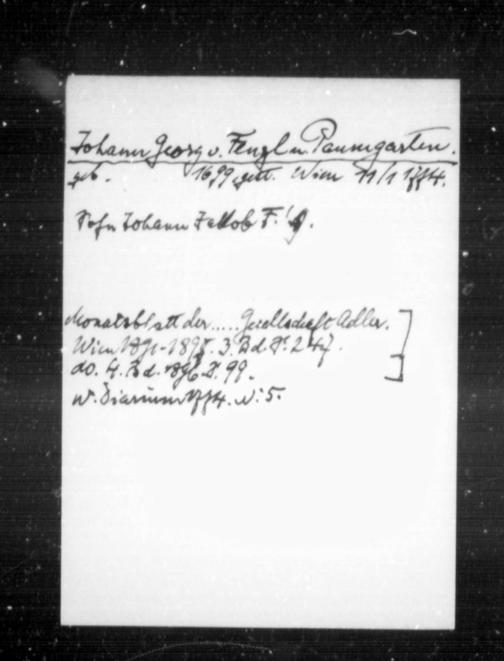 Johann Georg v. Fenzl u. Paumgarten.
geb. 1699 gest. Wien 11/1 1774.
Sohn Johann Jakob F.'s.
Monatsblatt der ..... Gesellschaft Adler.
Wien 1891-1895. 3. Bd. S. 247.
do. 4. Bd. 1896. S. 99.
W. Diarium 1774. N: 5.